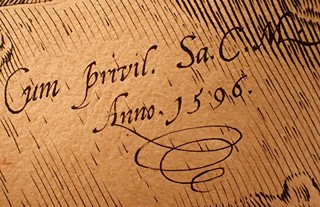 Cum privil. Sa. C. M.
Anno. 1596.